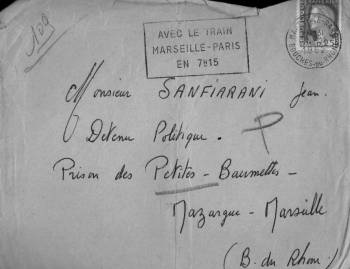 AVEC LE TRAIN
MARSEILLE-PARIS
EN 7H15
Monsieur SANFIARANI Jean.
Detenu Politique.
Prison des Petites-Baumettes-
Mazargue-Marseille
(B. du Rhone)